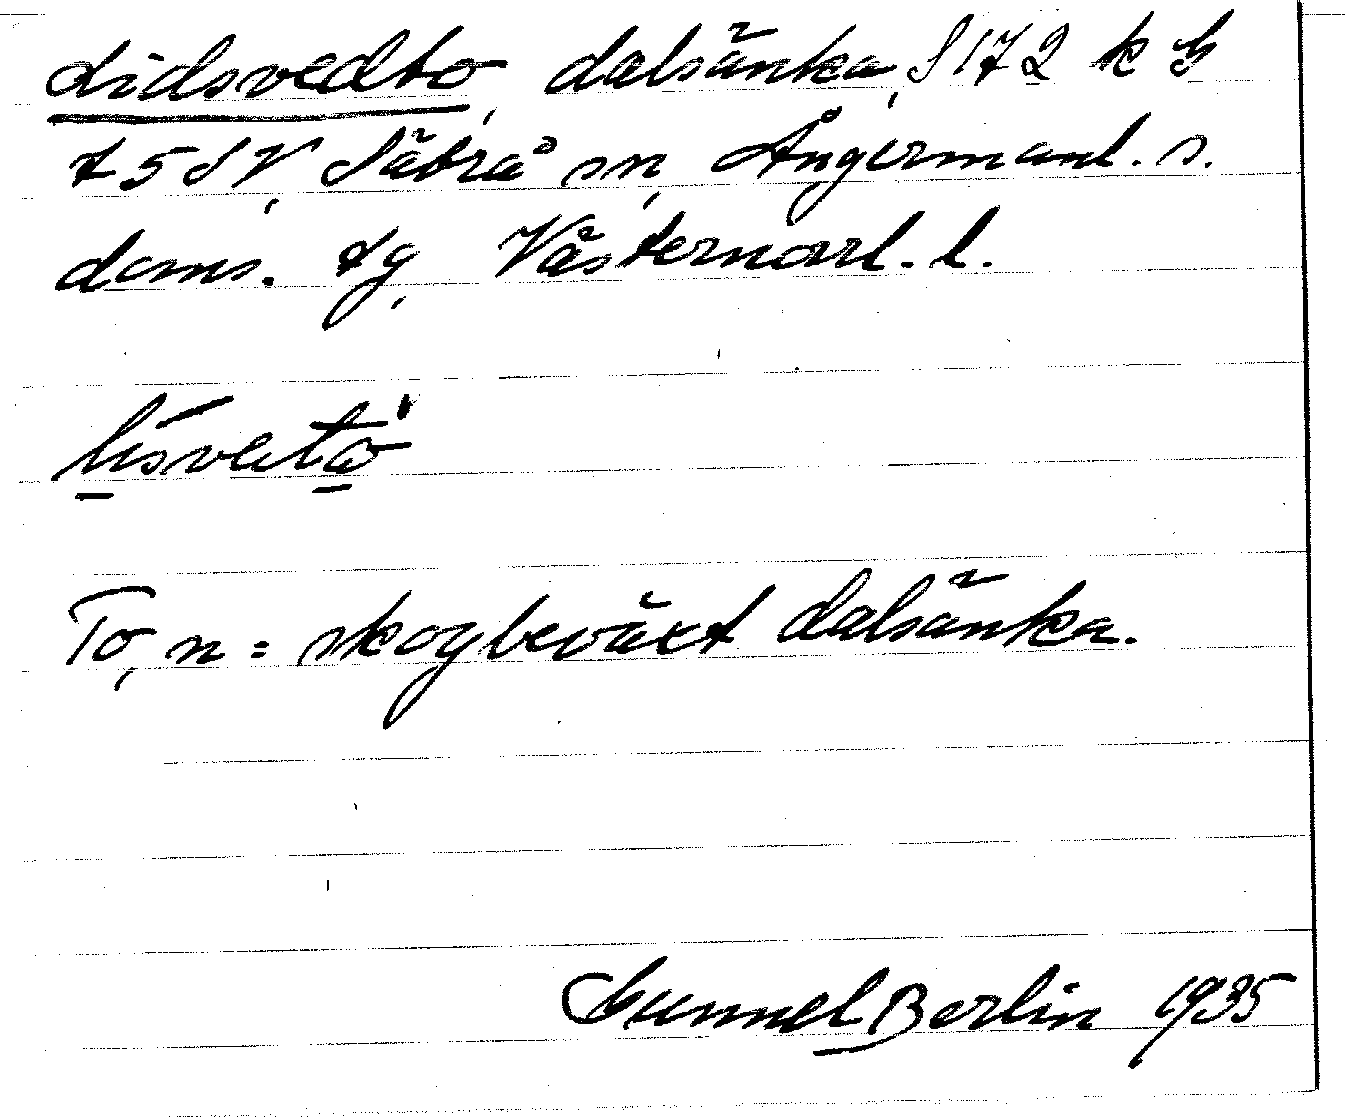 Lidsvedto, dalsänka, S 172 k B
f 5 SV, Säbrå sn, Ångermanl. s.
doms. tg, Västernorrl. l.
To, n = skogbeväxt dalsänka.
Gunnel Berlin 1935